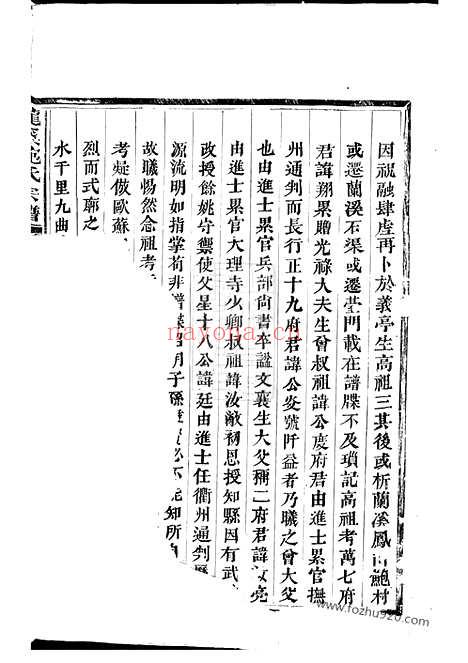 因祝融肆虐再卜於義亭生高祖三其後或析蘭溪鳳山鮑村
或遷蘭溪石渠或遷塋門載在譜牒不及瑣記高祖考萬七府
君諱翔累贈光祿大夫生曾叔祖諱公度府君由進士累官撫
州通判而長行正十九府君諱公姿號阡益者乃曦之曾大父
也由進士累官兵部尚書卒謚文襄生大父稱二府君諱汝亮
由進士累官大理寺少卿叔祖諱汝敵初恩授知縣因有武
政授餘姚守禦使父星十八公諱廷由進士任衢州通判
源流明如指掌茍非譜 明子孫 必不能知所自
故曦惕然念祖考
考疑倣歐蘇
烈而式廓之
水千里九曲
龍溪范氏宗譜
nayona.cn
www.fozhu920.com